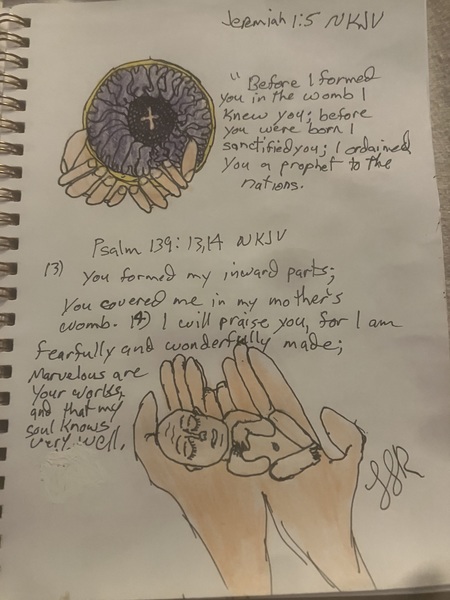 Jeremiah 1:5 NKJV
"Before I formed
you in the womb I
knew you; before
you were born I
sanctified you; I ordained
You a prophet to the
nations.
Psalm 139:13,14 NKJV
13) You formed my inward parts;
You covered me in my mother's
womb. 14) I will praise you, for I am
fearfully and wonderfully made;
Marvelous are
Your works,
and that my
soul knows
very well.